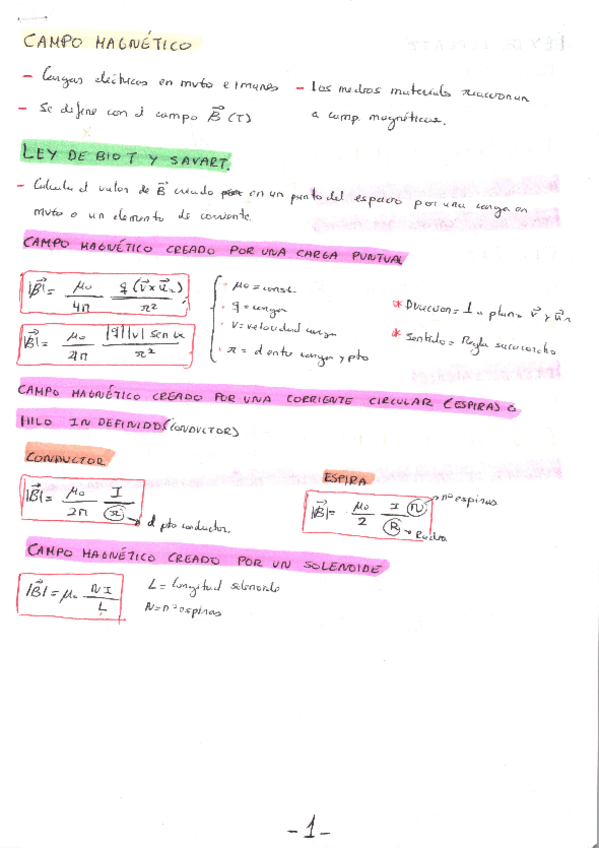 CAMPO MAGNÉTICO
- Cargas eléctricas en mvto e imanes
- Se define con el campo B⃗ (T)
- Los medios materiales reaccionan
a camp. magnéticos.
LEY DE BIOT Y SAVART.
- Calcula el valor de B⃗ creado en un punto del espacio por una carga en
mvto o un elemento de corriente.
CAMPO MAGNÉTICO CREADO POR UNA CARGA PUNTUAL
|B⃗| = μ₀/4π q(v⃗ x u⃗r)/r²
|B⃗| = μ₀/4π |q||v| sen α/r²
· μ₀ = const.
· q = carga
· v = velocidad carga
· r = d entre carga y pto
* Direccion = ⊥ a plano v⃗ y u⃗r
* Sentido = Regla sacacorcho
CAMPO MAGNÉTICO CREADO POR UNA CORRIENTE CIRCULAR (ESPIRAS) o
HILO INDEFINIDO (CONDUCTOR)
CONDUCTOR
|B⃗| = μ₀/2π I/r → d pto conductor.
ESPIRA
|B⃗| = μ₀/2 I N/R
→ nº espiras
→ Radio
CAMPO MAGNÉTICO CREADO POR UN SOLENOIDE
|B⃗| = μ₀ NI/L
L = longitud solenoide
N = nº espiras
-1-